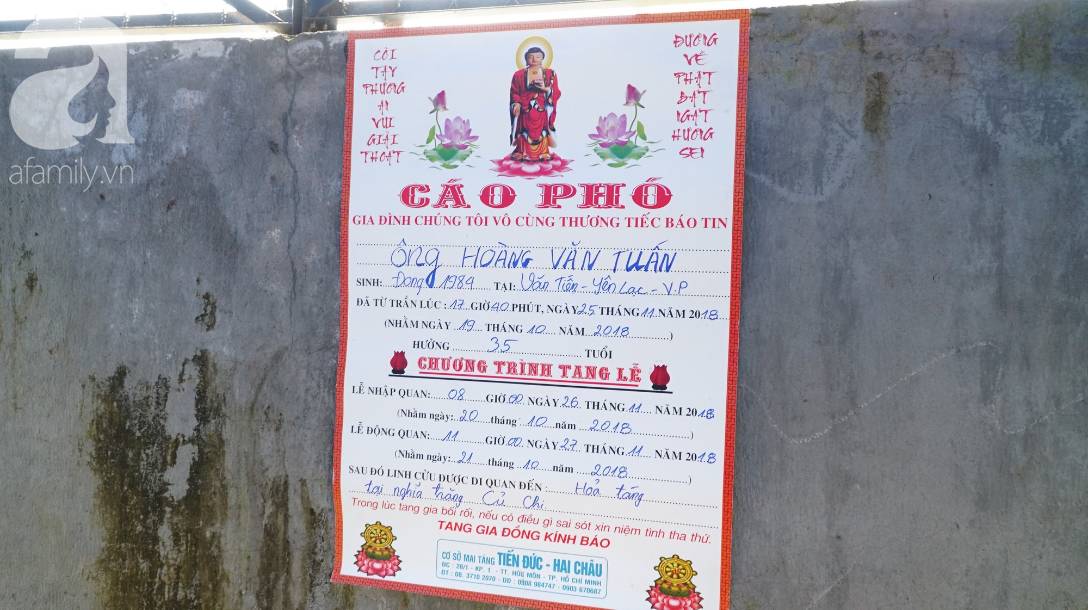 a
afamily.vn
CÕI
TÂY
PHƯƠNG
AN
VUI
GIẢI
THOÁT
ĐƯỜNG
VỀ
PHẬT
BÁT
NGÁT
HƯƠNG
SEN
CÁO PHÓ
GIA ĐÌNH CHÚNG TÔI VÔ CÙNG THƯƠNG TIẾC BÁO TIN
Ông HOÀNG VĂN TUẤN
SINH: Dong 1984 TẠI: Văn Tiến - Yên Lạc - V.P
ĐÃ TỪ TRẦN LÚC : 17 GIỜ 40 PHÚT, NGÀY 25 THÁNG 11 NĂM 2018
(NHẰM NGÀY 19 THÁNG 10 NĂM 2018)
HƯỞNG 35 TUỔI
CHƯƠNG TRÌNH TANG LỄ
LỄ NHẬP QUAN: 08 GIỜ 00 NGÀY 26 THÁNG 11 NĂM 2018
(Nhằm ngày: 20 tháng 10 năm 2018)
LỄ ĐỘNG QUAN: 11 GIỜ 00 NGÀY 27 THÁNG 11 NĂM 2018
(Nhằm ngày: 21 tháng 10 năm 2018)
SAU ĐÓ LINH CỮU ĐƯỢC DI QUAN ĐẾN : Hoả táng
tại nghĩa trăng Củ Chi
Trong lúc tang gia bối rối, nếu có điều gì sai sót xin niệm tình tha thứ.
TANG GIA ĐỒNG KÍNH BÁO
CƠ SỞ MAI TÁNG TIẾN ĐỨC - HẢI CHÂU
ĐC : 26/1 - KP. 1 - TT. HÓC MÔN - TP. HỒ CHÍ MINH
ĐT : 08. 3710 2070 - DĐ : 0908 964747 - 0903 670687